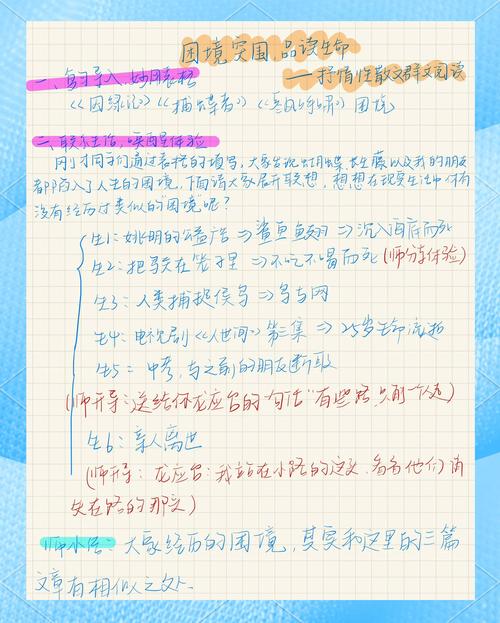 困境突围,品读生命
——抒情性散文群文阅读
一、复习导入,妙用表格
《囚绿记》《捕蝶者》《寒风吹彻》困境
二、联系生活,唤醒体验
刚才同学们通过表格的填写,大家发现蝴蝶、常春藤以及我的朋友
都陷入了人生的困境,下面请大家展开联想,想想在现实生活中你有
没有经历过类似的"困境"呢?
生1:姚明的公益广告⇒鲨鱼鱼翅⇒沉入海底而死
生2:把 在笼子里⇒不吃不喝而死(师分享体验)
生3:人类捕捉候鸟⇒鸟与网
生4:电视剧《人世间》第三集⇒25岁生命流逝
生5:中考,与之前的朋友断联
(师开导:送给你龙应台的一句话"有些路,只能一个人走)
生6:亲人离世
(师开导:龙应台:我站在小路的这头,看着他们消
失在路的那头)
师小结:大家经历的困境,其实和这里的三篇
文章有相似之处.